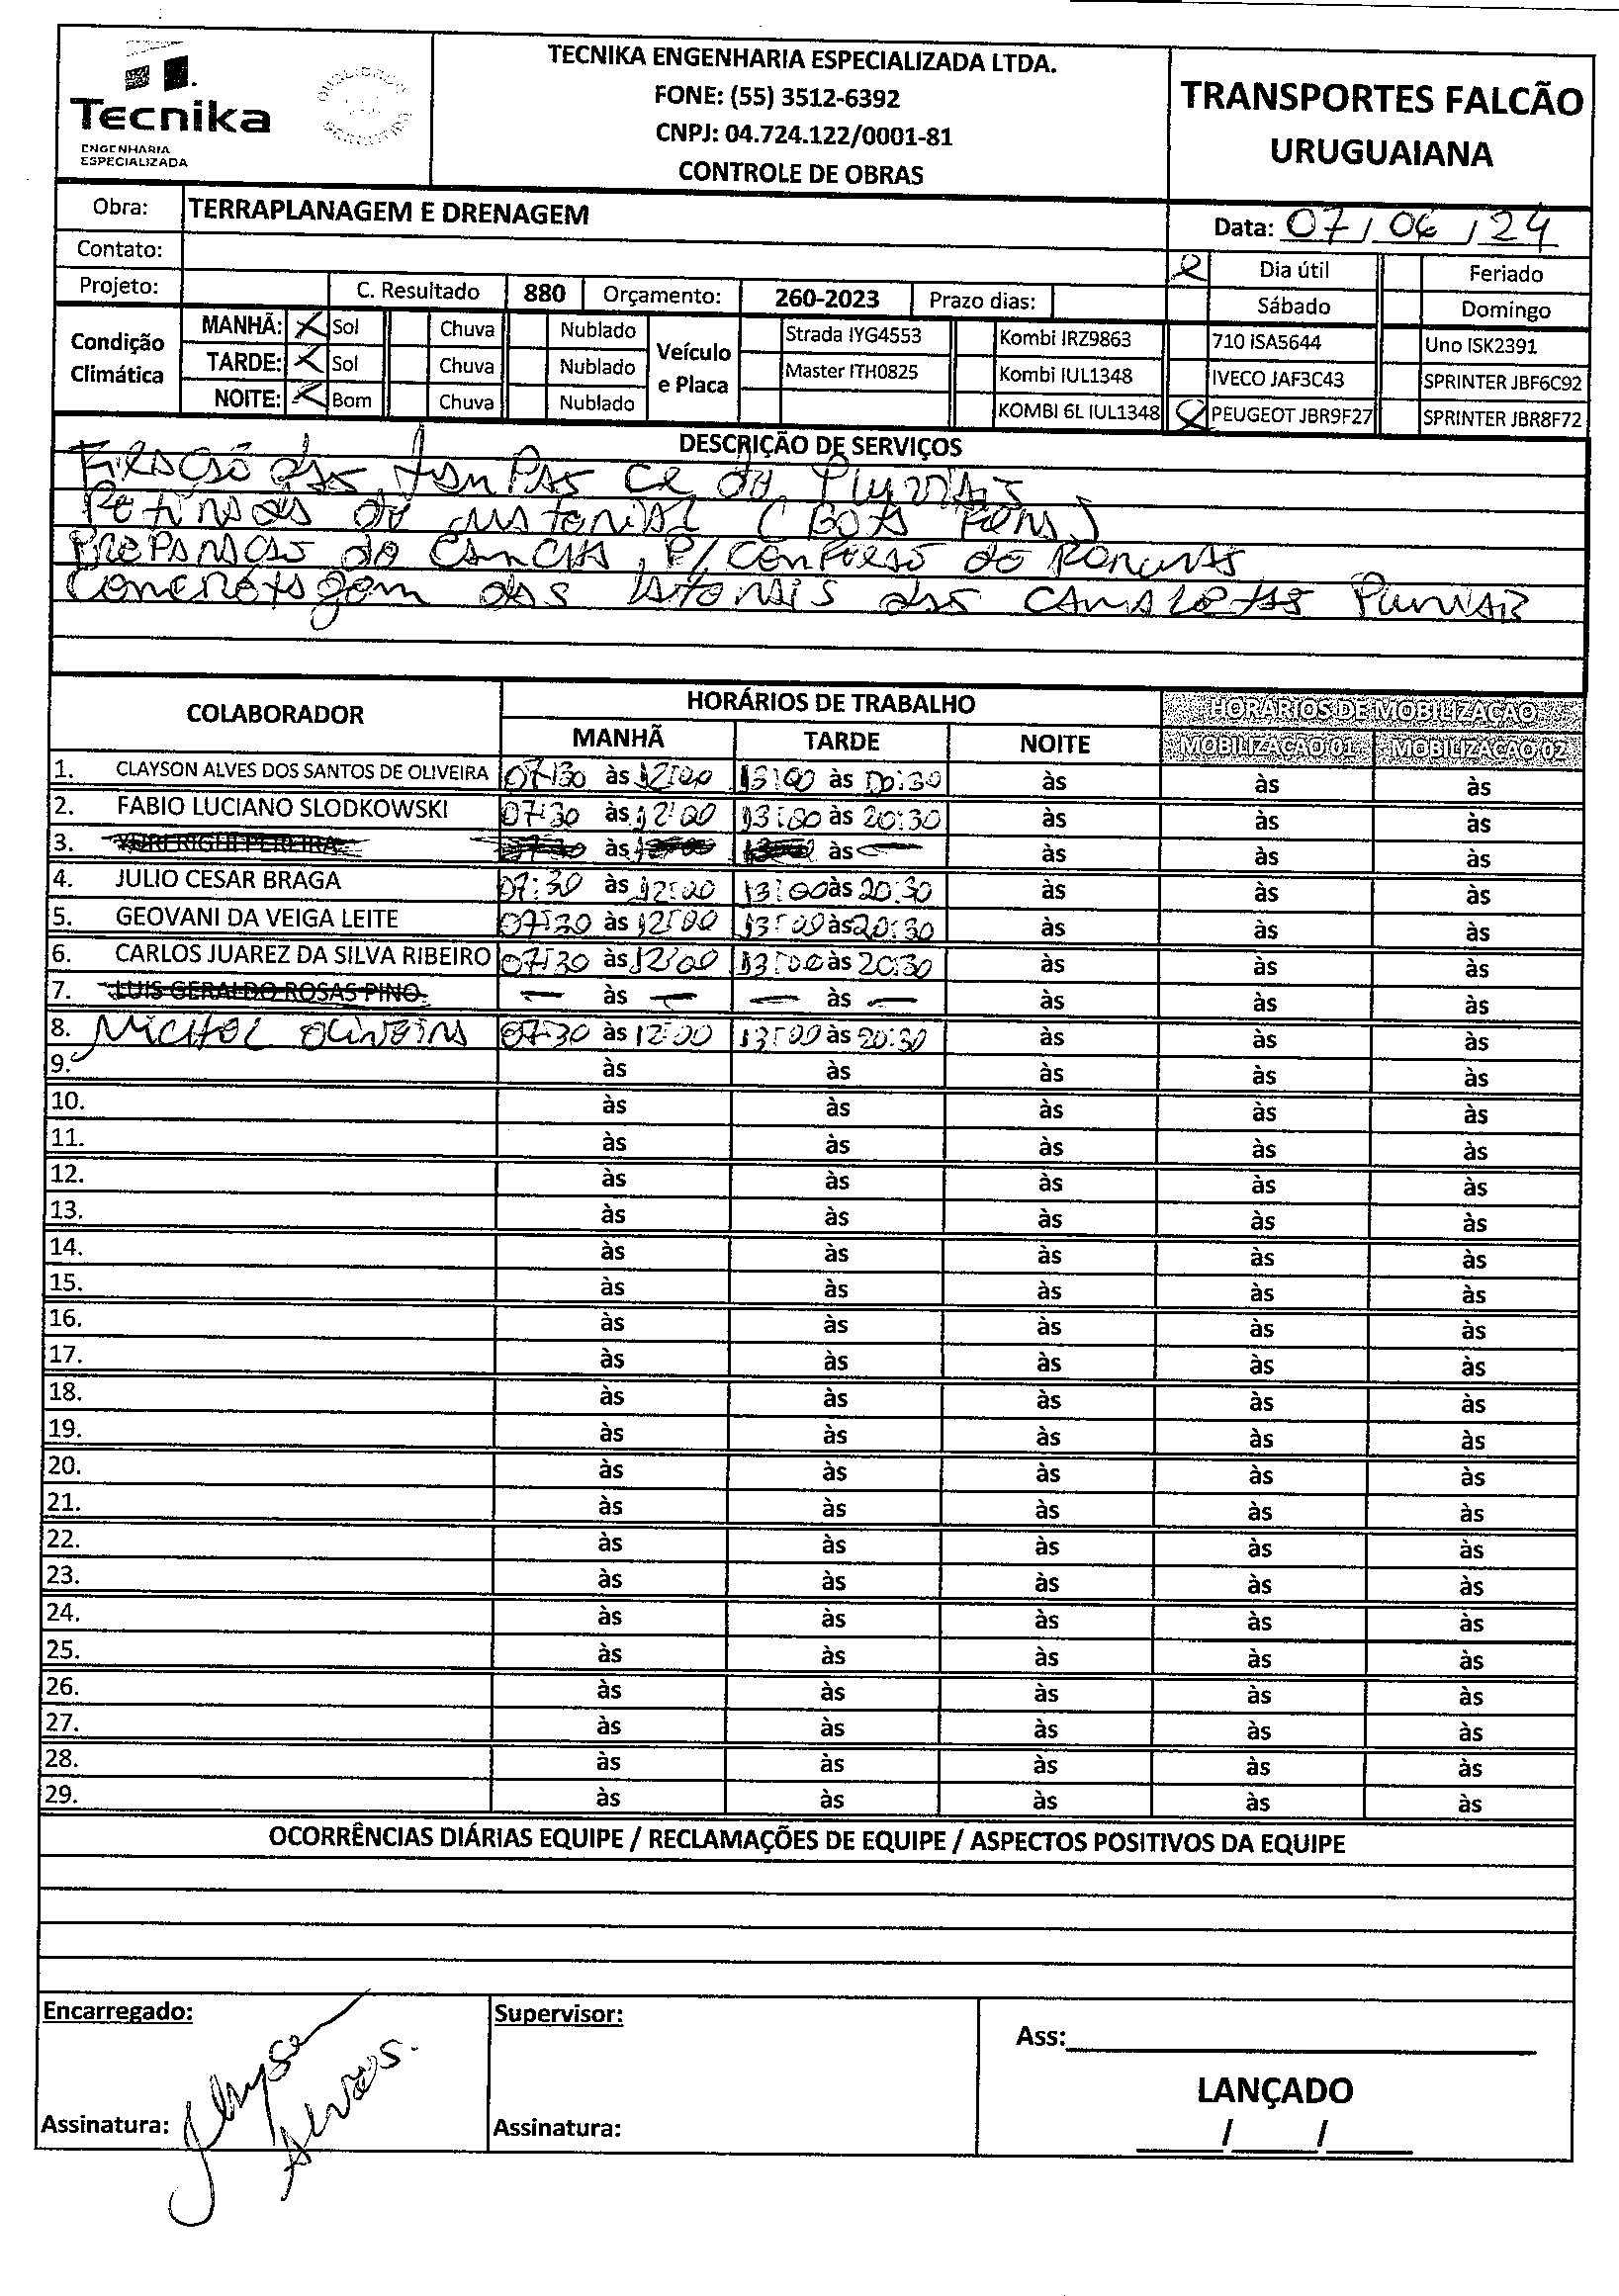 Tecnika
ENGENHARIA
ESPECIALIZADA
TECNIKA ENGENHARIA ESPECIALIZADA LTDA.
FONE: (55) 3512-6392
CNPJ: 04.724.122/0001-81
CONTROLE DE OBRAS
TRANSPORTES FALCÃO
URUGUAIANA
Obra: TERRAPLANAGEM E DRENAGEM
Data: 07/06/24
Contato:
Dia útil Feriado
Projeto: C. Resultado 880 Orçamento: 260-2023 Prazo dias:
Sábado Domingo
Condição Climática
MANHÃ: X Sol Chuva Nublado
TARDE: X Sol Chuva Nublado
NOITE: X Bom Chuva Nublado
Veículo e Placa
Strada IYG4553 Kombi IRZ9863 710 ISA5644 Uno ISK2391
Master ITH0825 Kombi IUL1348 IVECO JAF3C43 SPRINTER JBF6C92
KOMBI 6L IUL1348 X PEUGEOT JBR9F27 SPRINTER JBR8F72
DESCRIÇÃO DE SERVIÇOS
Fixação das tampas cx de Pluviais
Retiradas de material (Bota Fora)
Preparação de cancha P/
Concretagem das laterais das canaletas Pluviais
COLABORADOR HORÁRIOS DE TRABALHO HORÁRIOS DE MOBILIZAÇÃO
MANHÃ TARDE NOITE MOBILIZAÇÃO 01 MOBILIZAÇÃO 02
1. CLAYSON ALVES DOS SANTOS DE OLIVEIRA 07:30 às 12:00 13:00 às :30 às às às
2. FABIO LUCIANO SLODKOWSKI 07:30 às 12:00 13:00 às 20:30 às às às
3. YURI RIGHI PEREIRA às às às às às
4. JULIO CESAR BRAGA 07:30 às 12:00 13:00 às 20:30 às às às
5. GEOVANI DA VEIGA LEITE 07:30 às 12:00 13:00 às 20:30 às às às
6. CARLOS JUAREZ DA SILVA RIBEIRO 07:30 às 12:00 13:00 às 20:30 às às às
7. LUIS GERALDO ROSAS PINO — às — — às — às às às
8. Michel Oliveira 07:30 às 12:00 13:00 às 20:30 às às às
9. às às às às às
10. às às às às às
11. às às às às às
12. às às às às às
13. às às às às às
14. às às às às às
15. às às às às às
16. às às às às às
17. às às às às às
18. às às às às às
19. às às às às às
20. às às às às às
21. às às às às às
22. às às às às às
23. às às às às às
24. às às às às às
25. às às às às às
26. às às às às às
27. às às às às às
28. às às às às às
29. às às às às às
OCORRÊNCIAS DIÁRIAS EQUIPE / RECLAMAÇÕES DE EQUIPE / ASPECTOS POSITIVOS DA EQUIPE
Encarregado: Supervisor:
Ass:
LANÇADO
Assinatura: Clayson Alves. Assinatura:
/ /